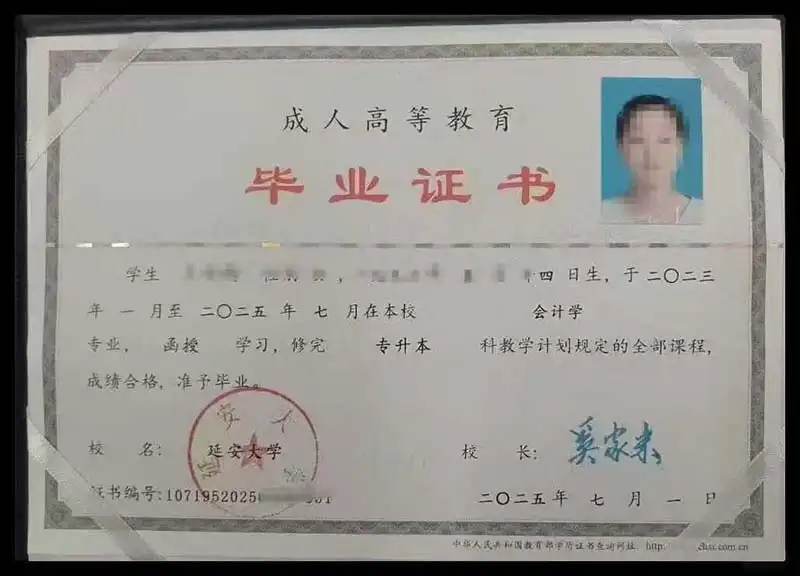 成人高等教育
毕业证书
学生 四 日生，于 二〇二三
年 一 月至 二〇二五 年 七 月在本校 会计学
专业， 函授 学习，修完 专升本 科教学计划规定的全部课程，
成绩合格，准予毕业。
校 名： 延安大学
校 长： 奚家米
证书编号：1071952025
二〇二五年 七 月 一 日
中华人民共和国教育部学历证书查询网址： http: chsi.com.cn